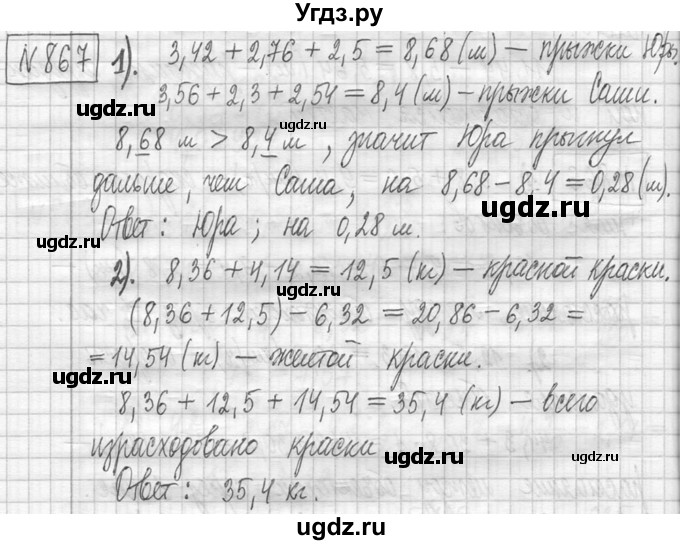 Угдз.ру
№867 1). 3,42 + 2,76 + 2,5 = 8,68 (м) – прыжки Юры.
3,56 + 2,3 + 2,54 = 8,4 (м) – прыжки Саши.
угдз.ру угдз.ру
8,68 м > 8,4 м, значит Юра прыгнул
дальше, чем Саша, на 8,68 – 8,4 = 0,28 (м).
угдз.ру угдз.ру
Ответ: Юра; на 0,28 м.
2). 8,36 + 4,14 = 12,5 (кг) – красной краски.
угдз.ру
(8,36 + 12,5) – 6,32 = 20,86 – 6,32 =
= 14,54 (кг) – желтой краски.
угдз.ру угдз.ру
8,36 + 12,5 + 14,54 = 35,4 (кг) – всего
израсходовано краски
угдз.ру угдз.ру
Ответ: 35,4 кг.
угдз.ру